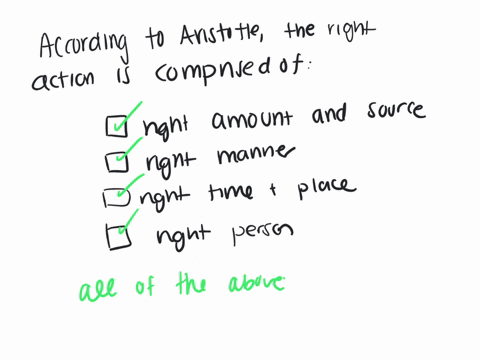 According to Aristotle, the right
action is comprised of:
right amount and source
right manner
right time + place
right person
all of the above